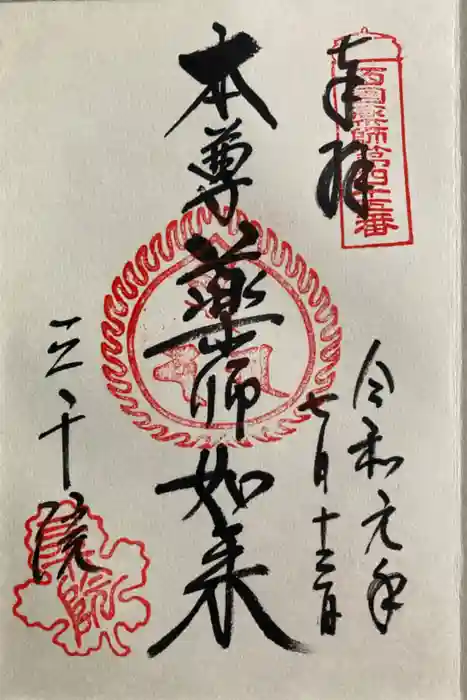 奉拝
西國薬師第四十五番
令和元年
七月十二日
本尊薬師如来
三千院